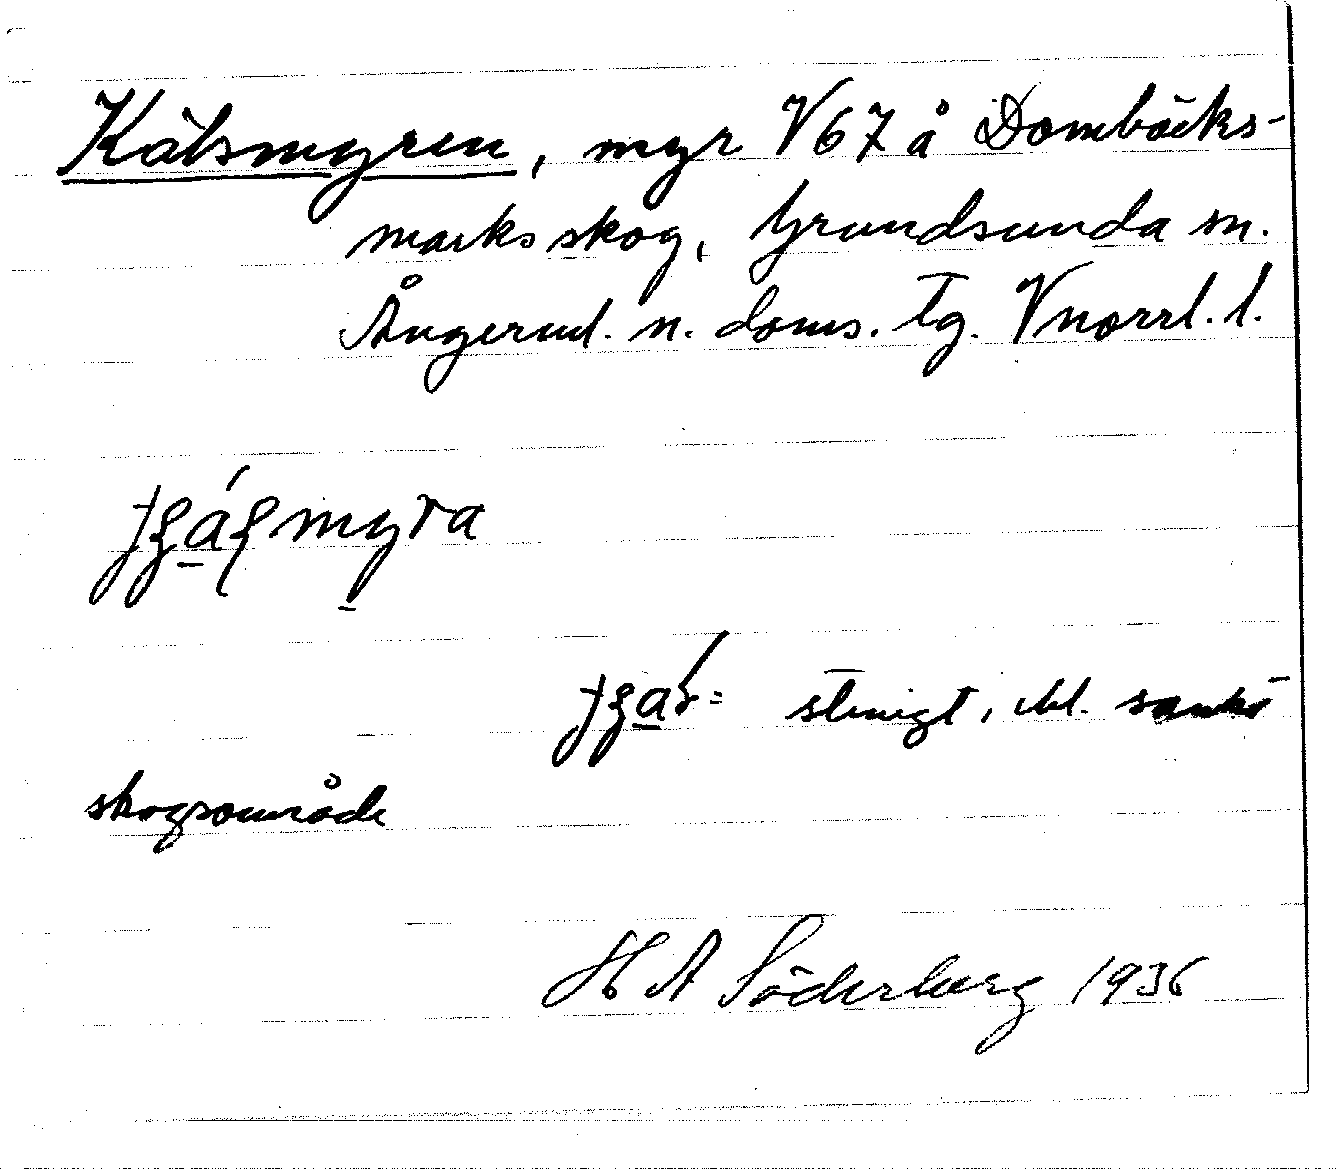 Kälsmyren, myr V67 å Dombäcks-
marks skog, Grundsunda sn.
Ångerml. n. doms. Tg. Vnorrl. l.
myra
= stenigt, ibl. sankt
skogsområde
H A Söderberg 1936